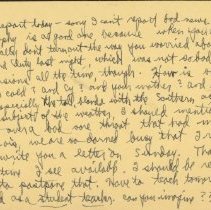 report today - sorry I can't report bad news
is as good one because when you
don't turn out the way you worried abo
and duty last night, which was not so bad
all the time, though. How is
cold? and Cy? and your mother? and
especially the tall blonde with the Southern
subject of the weather, I should mention
over a bad sore throat that had
we are so darned busy that I
write you a letter on Sunday. The
I see available, I should be
to postpone that. Have to teach tomorrow
as a student teacher. can you imagine??